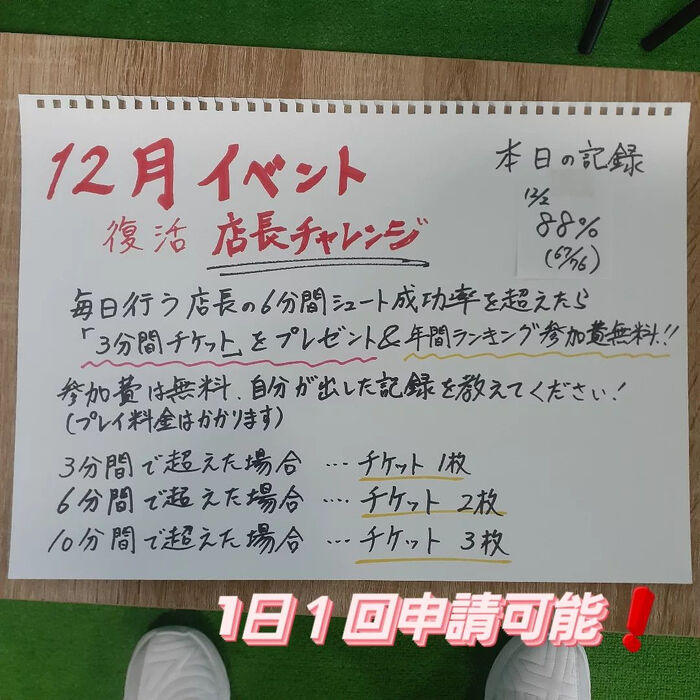 12月イベント
復活 店長チャレンジ
本日の記録
12/2
88%
(67/76)
毎日行う店長の6分間シュート成功率を超えたら
「3分間チケット」をプレゼント&年間ランキング参加費無料!!
参加費は無料、自分が出した記録を教えてください!
(プレイ料金はかかります)
3分間で超えた場合 … チケット 1枚
6分間で超えた場合 … チケット 2枚
10分間で超えた場合 … チケット 3枚
1日1回申請可能❗